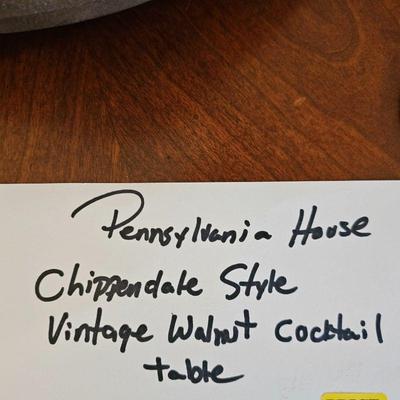 Pennsylvania House
Chippendale Style
Vintage Walnut Cocktail
table